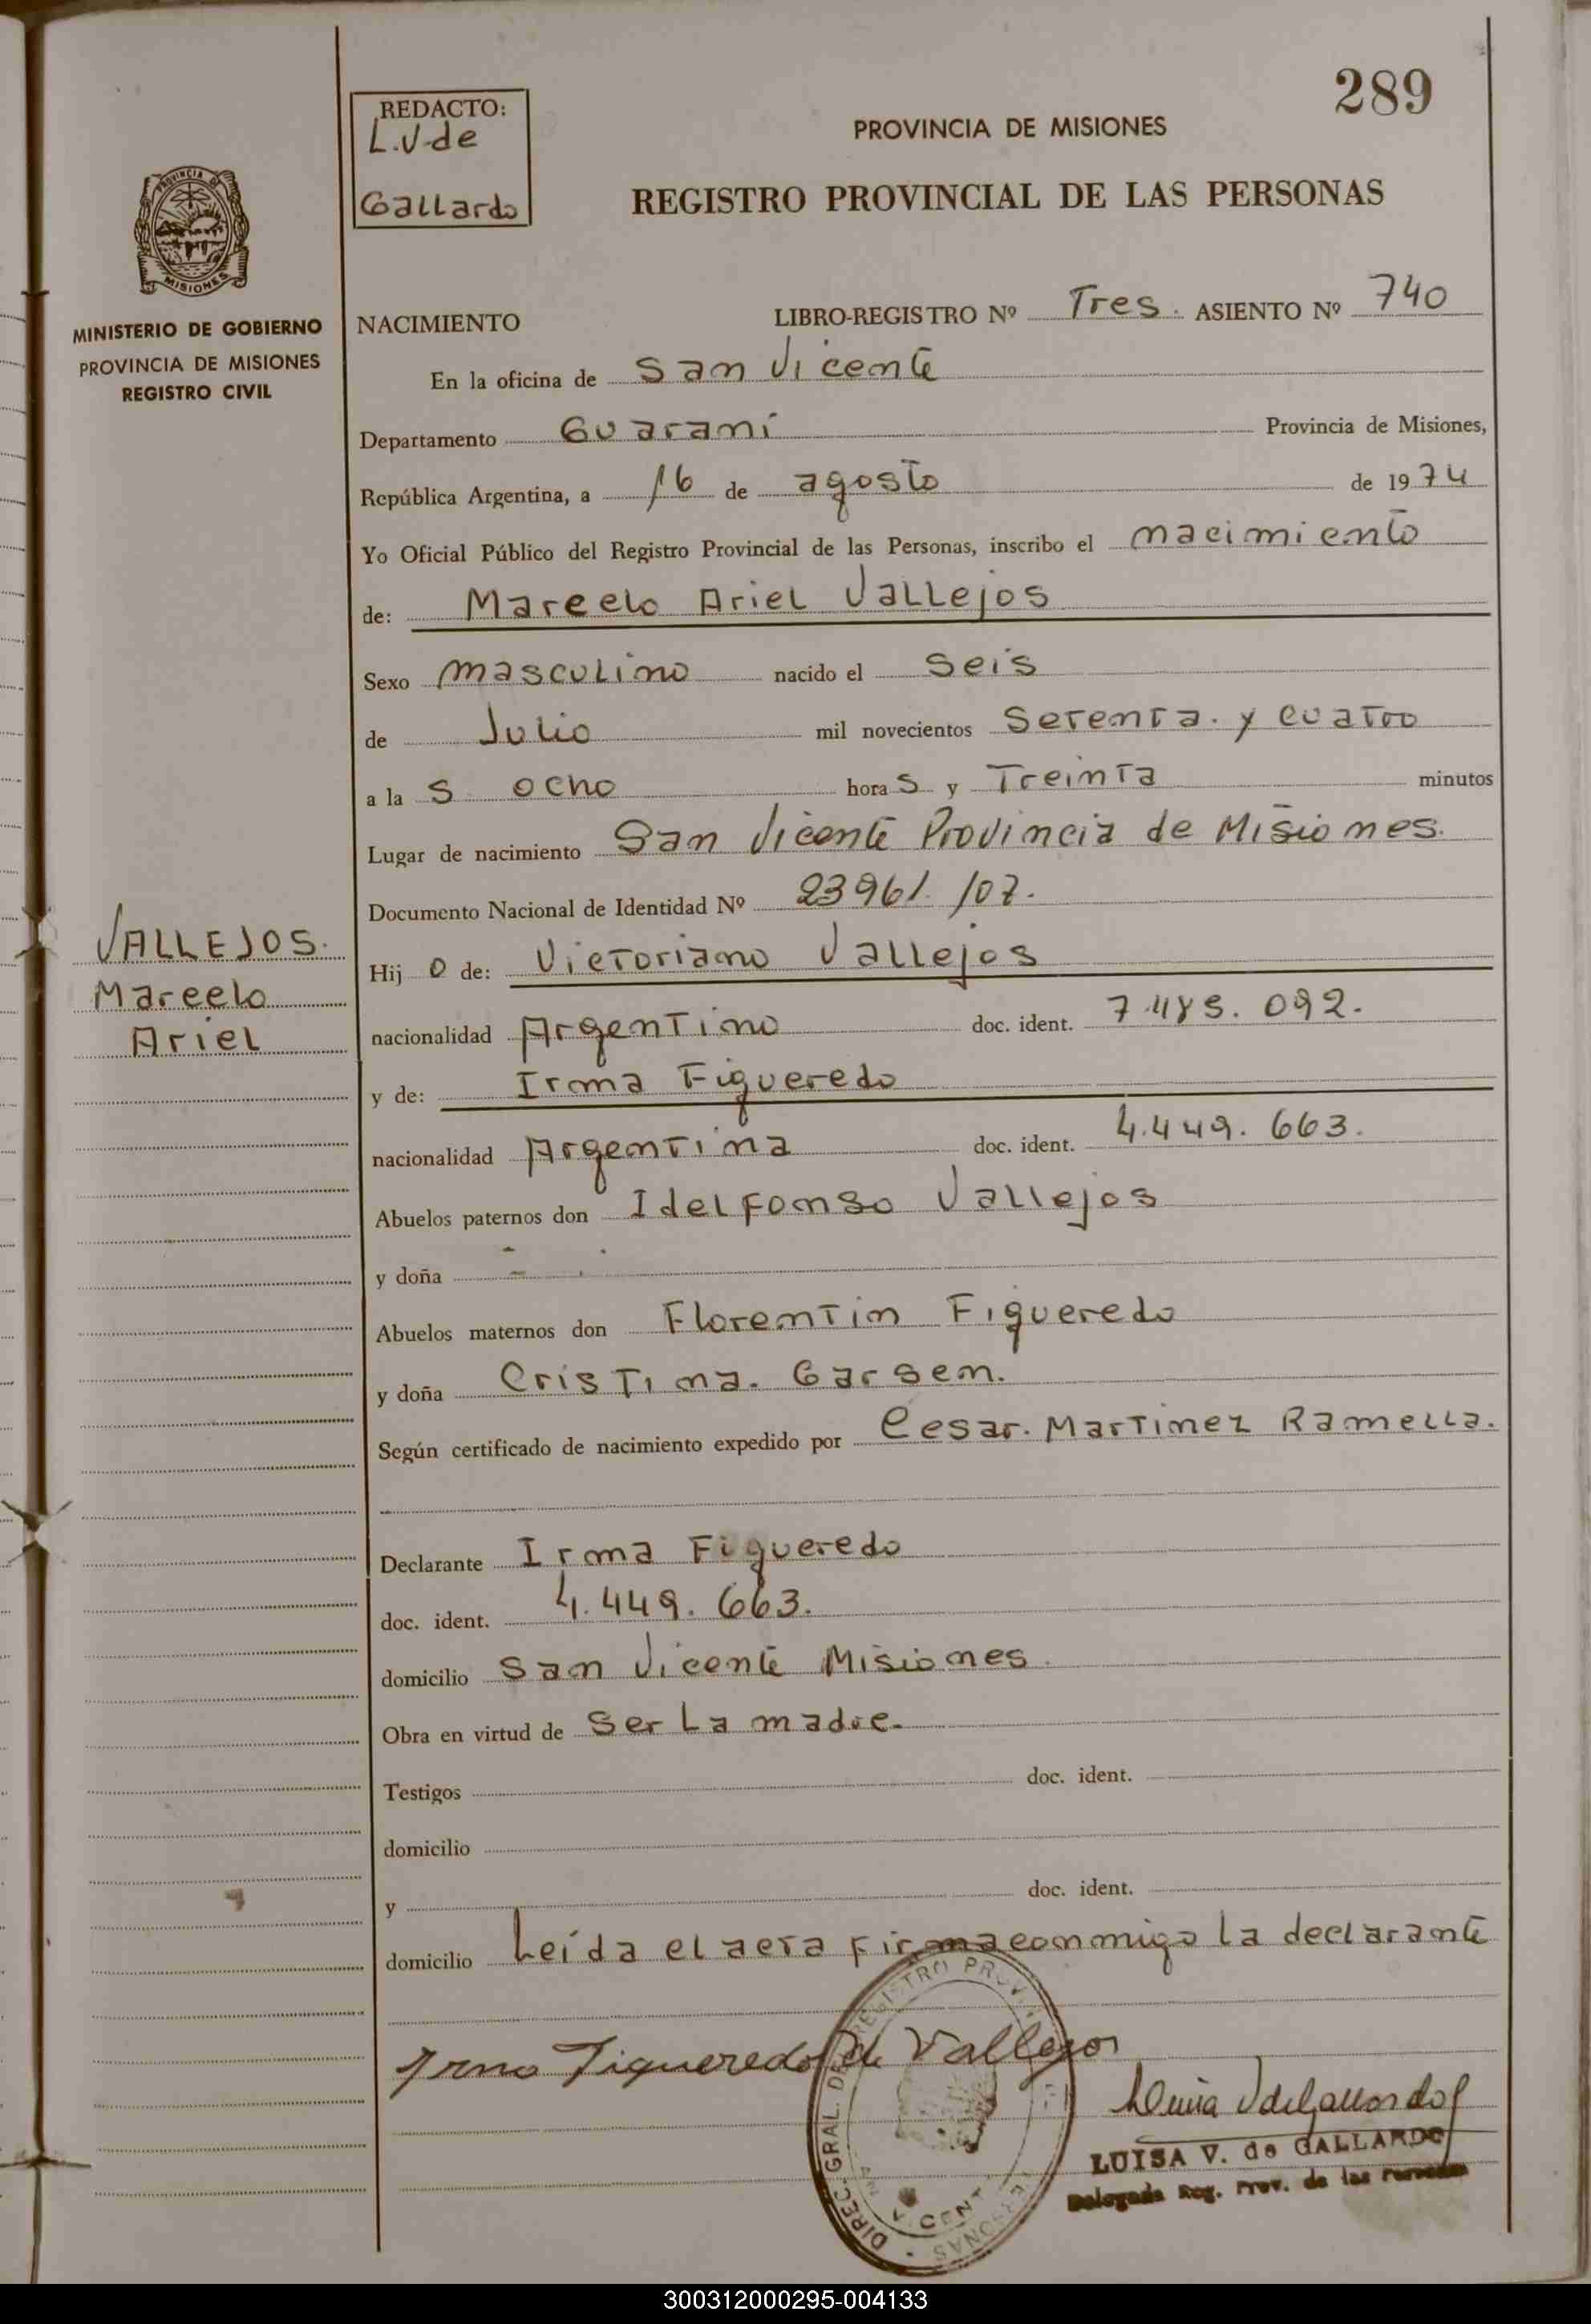 289
REDACTO:
L.V. de
Gallardo
PROVINCIA DE MISIONES
REGISTRO PROVINCIAL DE LAS PERSONAS
PROVINCIA DE
MISIONES
MINISTERIO DE GOBIERNO
PROVINCIA DE MISIONES
REGISTRO CIVIL
NACIMIENTO LIBRO-REGISTRO Nº Tres. ASIENTO Nº 740
En la oficina de San Vicente
Departamento Guaraní Provincia de Misiones,
República Argentina, a 16 de agosto de 1974
Yo Oficial Público del Registro Provincial de las Personas, inscribo el nacimiento
de: Marcelo Ariel Vallejos
Sexo masculino nacido el seis
de Julio mil novecientos Setenta. y cuatro
a la s ocho hora s y Treinta minutos
Lugar de nacimiento San Vicente Provincia de Misiones.
Documento Nacional de Identidad Nº 23961.107.
VALLEJOS.
Marcelo
Ariel
Hij o de: Victoriano Vallejos
nacionalidad Argentino doc. ident. 092.
y de: Irma Figueredo
nacionalidad Argentina doc. ident. 4.449.663.
Abuelos paternos don Idelfonso Vallejos
y doña
Abuelos maternos don Florentin Figueredo
y doña Cristina. Garsen.
Según certificado de nacimiento expedido por Cesar. Martinez Ramella.
Declarante Irma Figueredo
doc. ident. 4.449.663.
domicilio San Vicente Misiones.
Obra en virtud de ser La madre.
Testigos doc. ident.
domicilio
y doc. ident.
domicilio Leída el acta firma conmigo la declarante
Irma Figueredo de Vallejos
DIREC. GRAL. DE REGISTRO PROV. PERSONAS
Luisa V de Gallardo
LUISA V. de GALLARDO
Delegada Reg. Prov. de las Personas
300312000295-004133